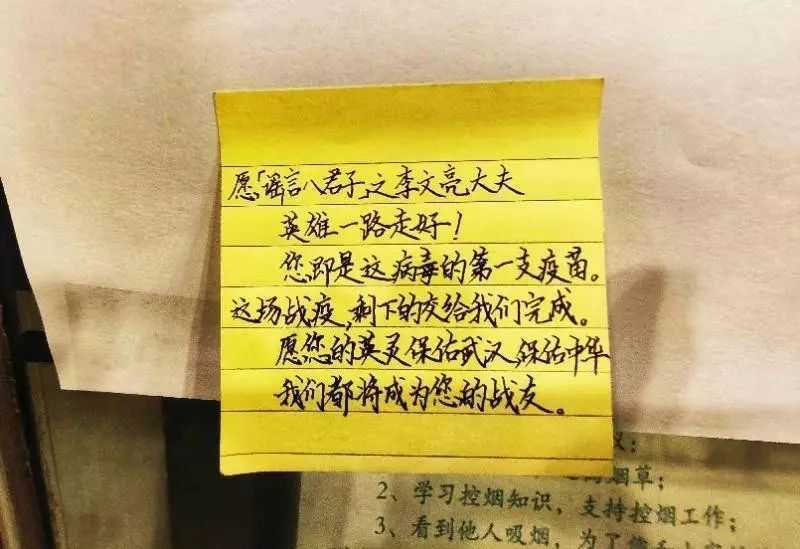 愿「谣言八君子」之李文亮大夫
英雄一路走好!
您即是这病毒的第一支疫苗。
这场战疫,剩下的交给我们完成。
愿您的英灵保佑武汉,保佑中华
我们都将成为您的战友。
烟草;
2、学习控烟知识,支持控烟工作;
3、看到他人吸烟,为了